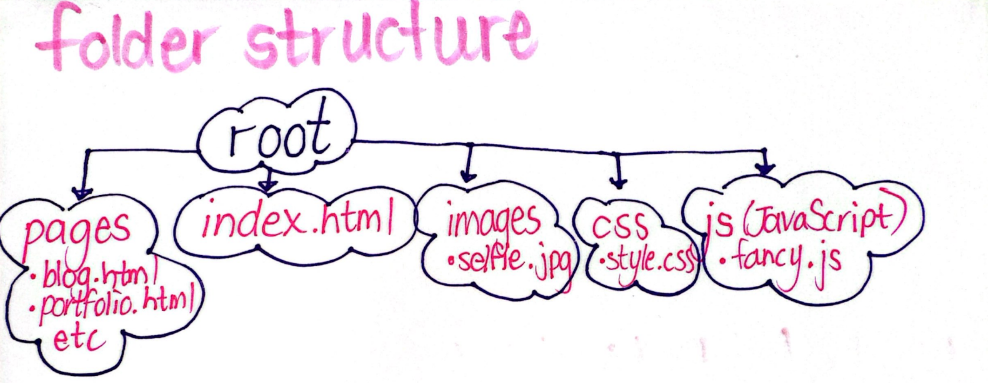 folder structure
root
pages
• blog.html
• portfolio.html
etc
index.html
images
• selfie.jpg
css
• style.css
js (JavaScript)
• fancy.js